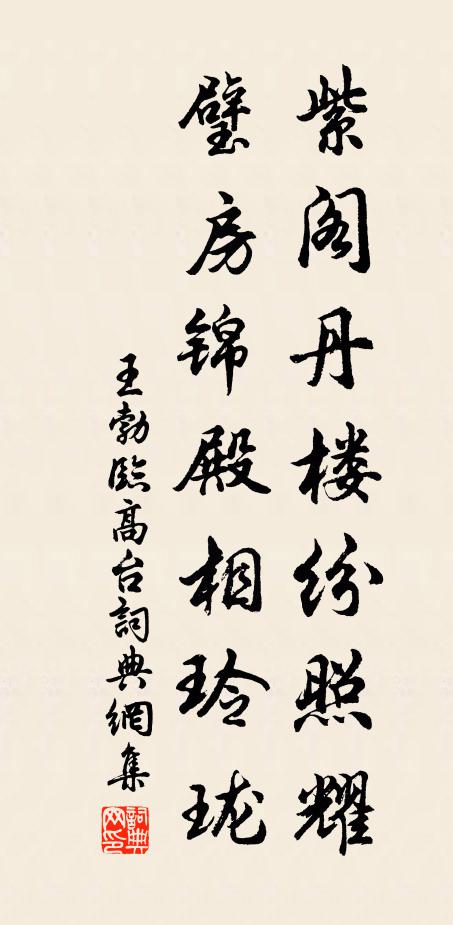 紫阁丹楼纷照耀
璧房锦殿相玲珑
王勃臨高台詞典網集
詞典
网印